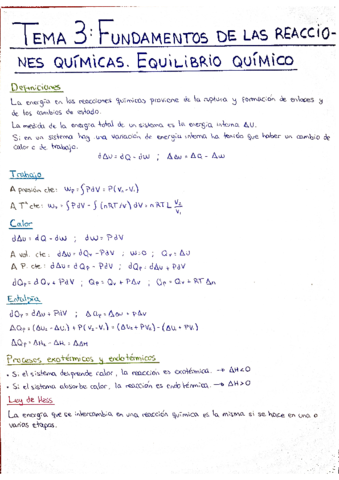 TEMA 3: FUNDAMENTOS DE LAS REACCIO-
NES QUÍMICAS. EQUILIBRIO QUÍMICO
Definiciones
La energía en las reacciones químicas proviene de la ruptura y formación de enlaces y
de los cambios de estado.
La medida de la energía total de un sistema es la energía interna ΔU.
Si en un sistema hay una variación de energía interna ha tenido que haber un cambio de
calor o de trabajo.
dΔU = dQ - dW ; ΔU = ΔQ - ΔW
Trabajo
A presión cte: Wp = ∫PdV = P(V₂-V₁)
A Tª cte: = ∫PdV = ∫(nRT/V)dV = nRTL V₂/V₁
Calor
dΔU = dQ - dW ; dW = PdV
A vol. cte: dΔU = dQv - PdV ; W=0 ; Qv = ΔU
A P. cte: dΔU = dQp - PdV ; dQp = dΔU + PdV
dQp = dQv + PdV ; Qp = Qv + PΔV ; Qp = Qv + RTΔn
Entalpía
dQp = dΔU + PdV ; ΔQp = ΔU + PΔV
ΔQp = (ΔU₂ - ΔU₁) + P(V₂-V₁) = (ΔU₂ + PV₂) - (ΔU₁ + PV₁)
ΔQp = ΔH₂ - ΔH₁ = ΔH
Procesos exotérmicos y endotérmicos
• Si el sistema desprende calor, la reacción es exotérmica. → ΔH<0
• Si el sistema absorbe calor, la reacción es endotérmica. → ΔH>0
Ley de Hess
La energía que se intercambia en una reacción química es la misma si se hace en una o
varias etapas.